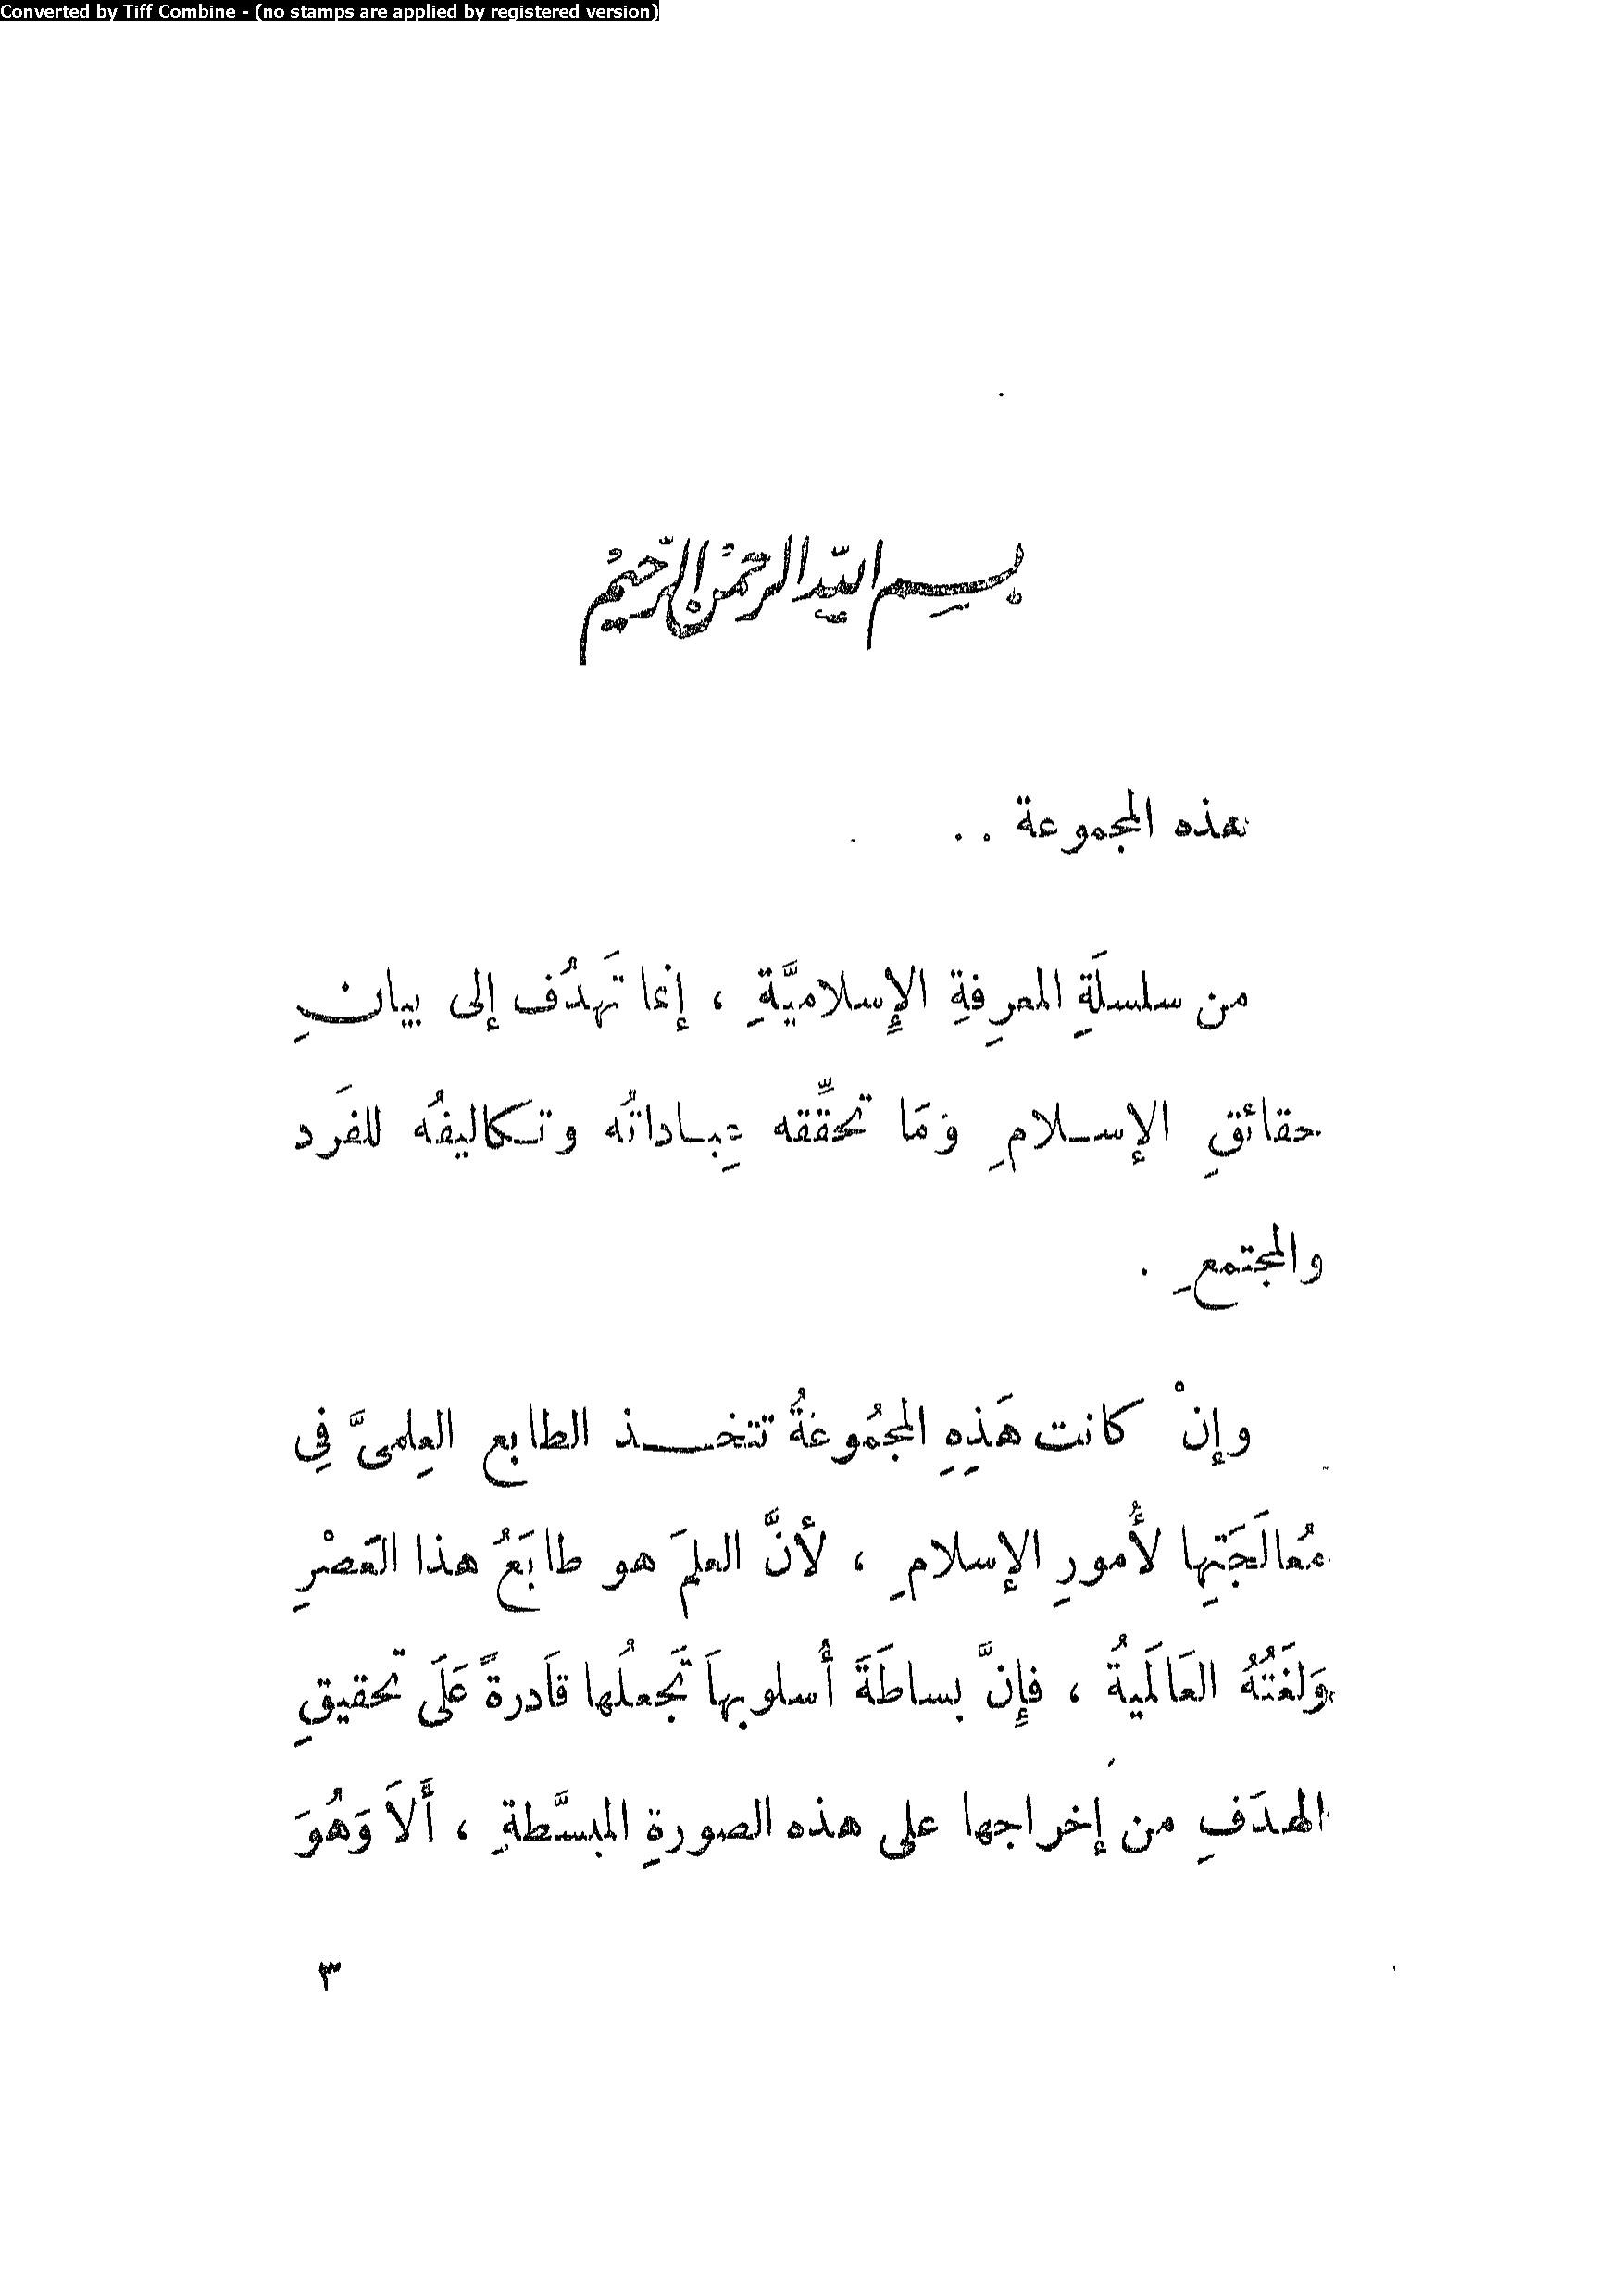 Converted by Tiff Combine - (no stamps are applied by registered version)
بسم الله الرحمن الرحيم
هذه المجموعة . .
من سلسلَةِ المعرِفةِ الإِسلاميَّةِ ، إنما تَهدُف إلى بيانِ
حقائقِ الإسلامِ وَمَا تحقِّقه عِباداتُه وتكاليفُه للفَرد
والمجتمعِ .
وإنْ كانت هَذِهِ المجمُوعةُ تتخذ الطابع العِلمىَّ فِى
مُعالَجَتِها لأُمورِ الإسلامِ ، لأنَّ العلمَ هو طابَعُ هذا العَصْرِ
وَلغَتُهُ العَالَميةُ ، فإِنَّ بساطَةَ أُسلوبهاَ تَجعلُها قاَدرةً عَلَى تحقيقِ
الهدَفِ من إخراجها على هذه الصورةِ المبسَّطةِ ، أَلاَ وَهُوَ
٣